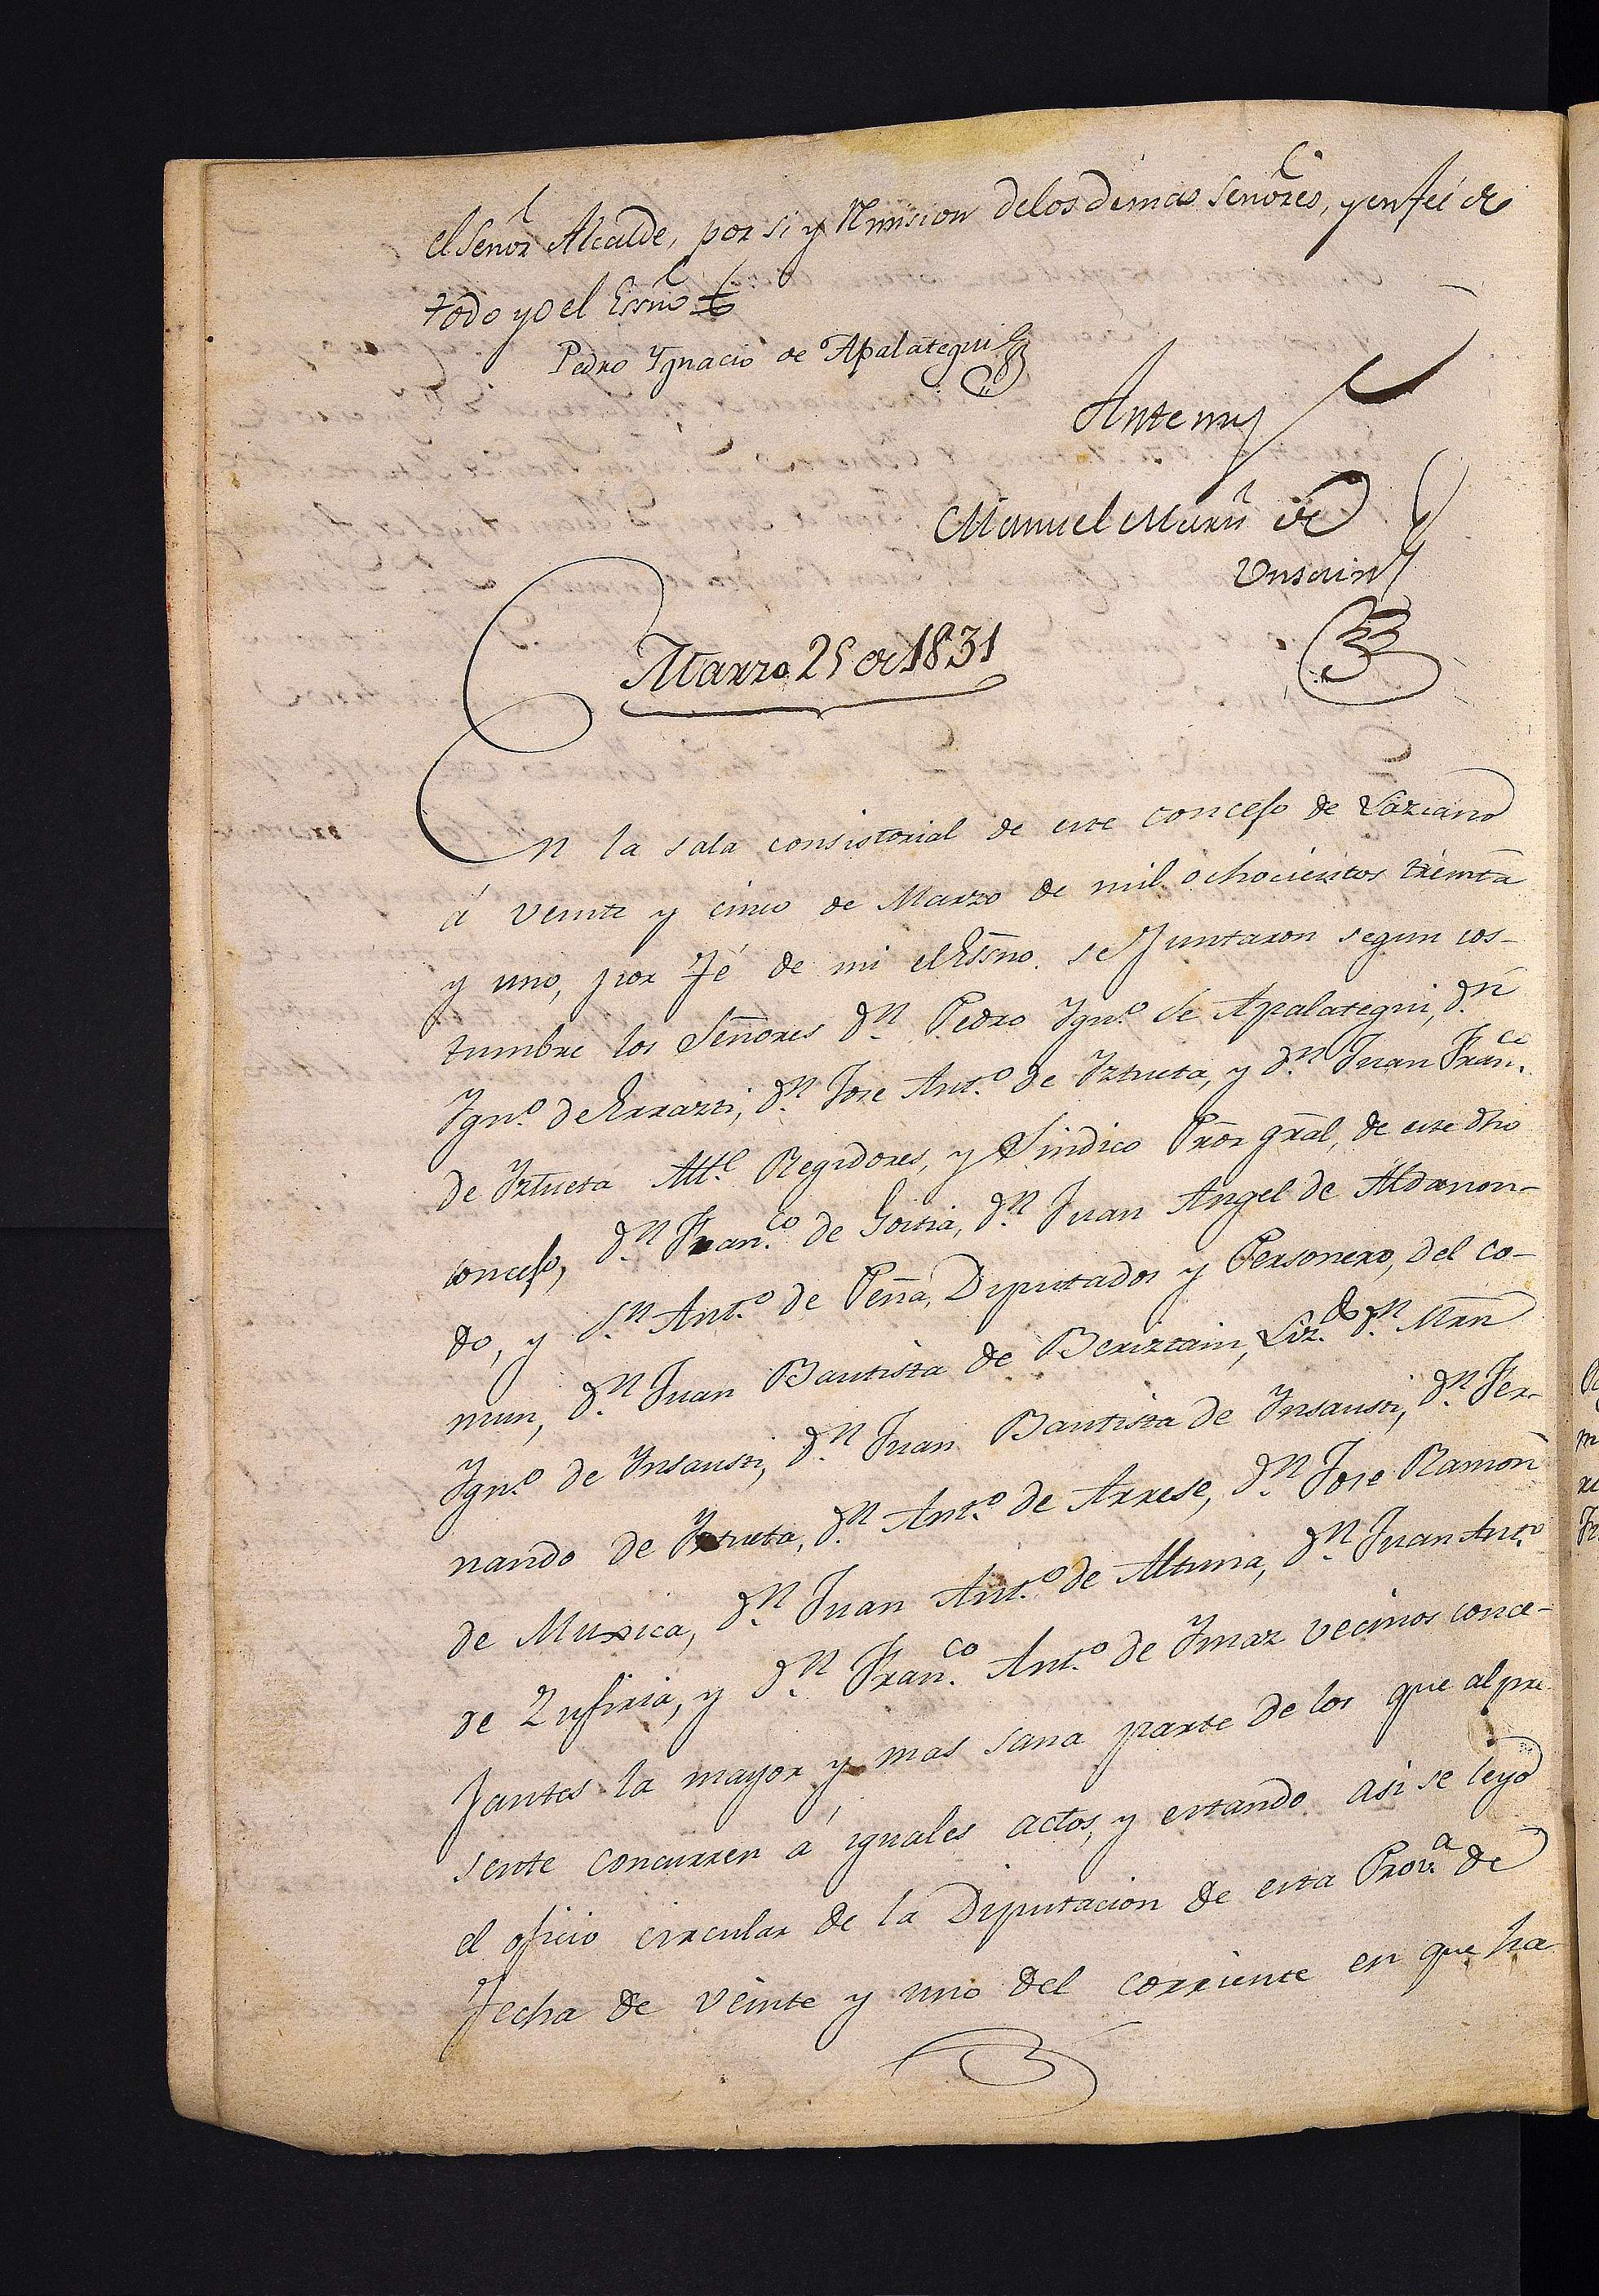 el Señor Alcalde, por si y Remision delos demas Señores, y enfeé de
todo yo el Essno
Pedro Ygnacio de Apalategui
Antemy
Manuel Marñ de
Unsain
Marzo 25 de 1831
En la sala consistorial de este concejo de Lazcano
á veinte y cinco de Marzo de mil ochocientos treinta
y uno, por fé de mi el Essno. se Juntaron segun cos-
tumbre los Señores Dn. Pedro Ygn.º de Apalategui, Dn
Ygn.º de Errazti, Dn. Jose Ant.º de Yztueta, y Dn. Juan Franco.
de Yztueta Alle. Regidores, y Sindico Pror gral, de este dho
concejo, Dn. Franco. de Goitia, Dn. Juan Angel de Aldanon-
do, y Dn. Ant.º de Peña, Diputados y Personero, del co-
mun, Dn. Juan Bautista de Beriztain, Lizdo. Dn. Mrn
Ygn.º de Ynsausti, Dn. Juan Bautista de Ynsausti, Dn. Fer-
nando de Yztueta, Dn. Ant.º de Arrese, Dn. Jose Ramon
de Muxica, Dn. Juan Ant.º de Altuna, Dn. Juan Ant.º
de Zufiria, y Dn. Franco. Ant.º de Ymaz vecinos conce-
jantes la mayor y mas sana parte de los que al pre-
sente concurren á iguales actos, y estando asi se leyó
el oficio circular de la Diputacion de esta Prova. de
fecha de veinte y uno del corriente en que ha